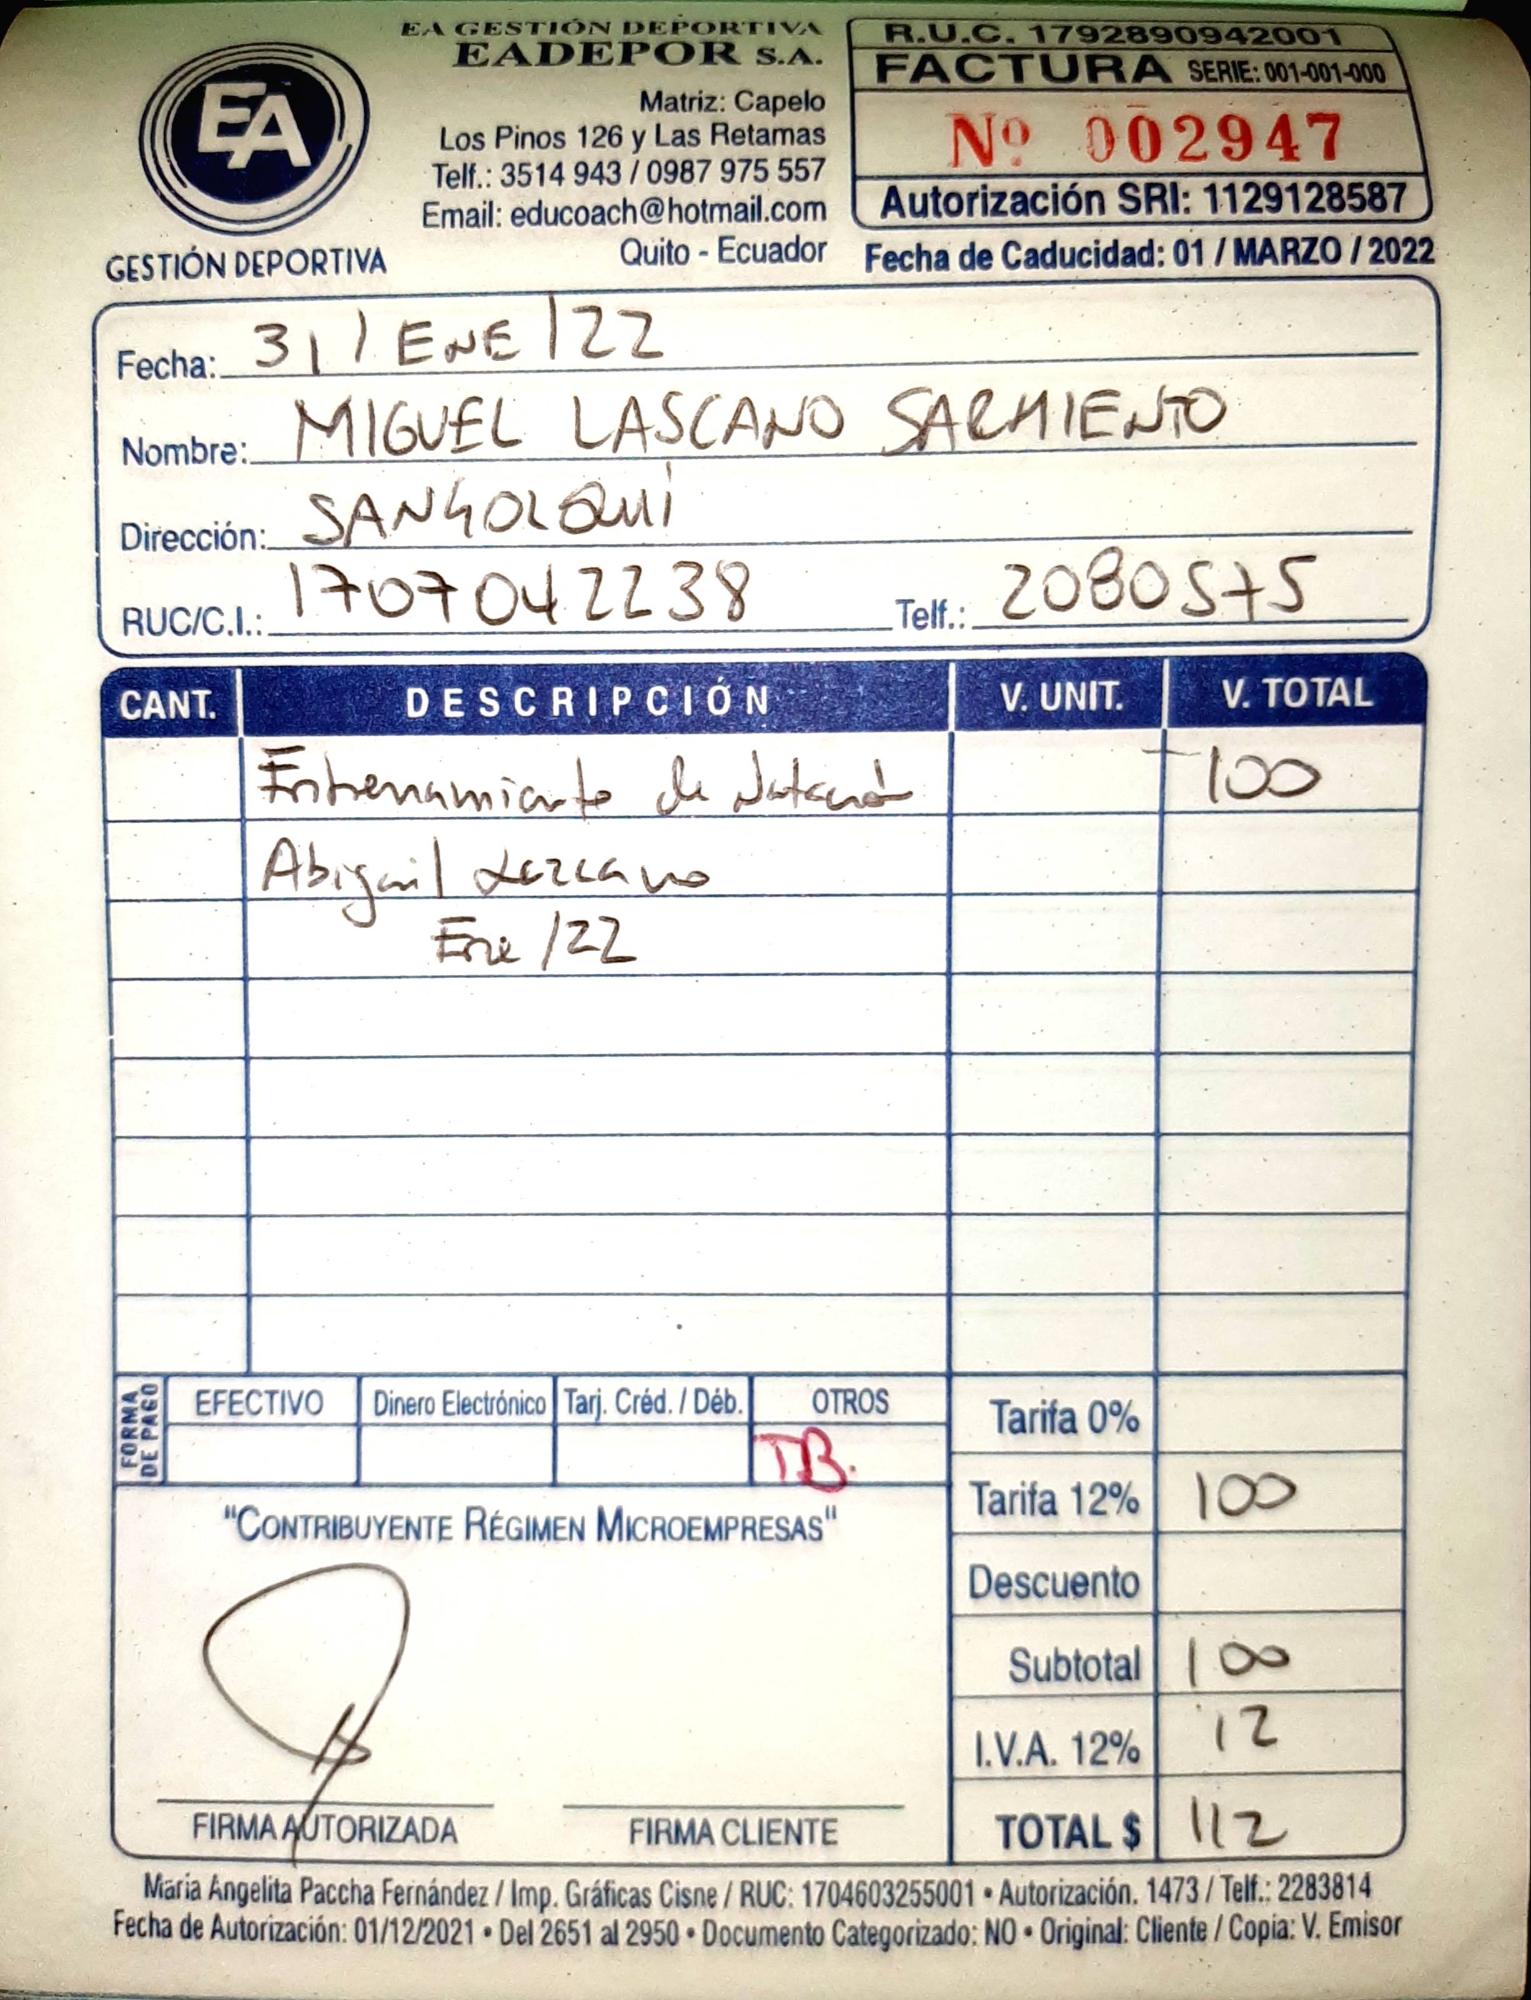 EA
GESTIÓN DEPORTIVA
EA GESTIÓN DEPORTIVA
EADEPOR S.A.
Matriz: Capelo
Los Pinos 126 y Las Retamas
Telf.: 3514 943 / 0987 975 557
Email: educoach@hotmail.com
Quito - Ecuador
R.U.C. 1792890942001
FACTURA SERIE: 001-001-000
Nº 002947
Autorización SRI: 1129128587
Fecha de Caducidad: 01 / MARZO / 2022
Fecha: 31 / ENE / 22
Nombre: MIGUEL LASCANO SARMIENTO
Dirección: SANGOLQUÍ
RUC/C.I.: 1707042238 Telf.: 2080575
CANT. DESCRIPCIÓN V. UNIT. V. TOTAL
Entrenamiento de Natación 100
Abigail Lazcano
Ene /22
FORMA DE PAGO
EFECTIVO Dinero Electrónico Tarj. Créd. / Déb. OTROS
TB.
Tarifa 0%
Tarifa 12% 100
"CONTRIBUYENTE RÉGIMEN MICROEMPRESAS"
Descuento
Subtotal 100
I.V.A. 12% 12
TOTAL $ 112
FIRMA AUTORIZADA FIRMA CLIENTE
Maria Angelita Paccha Fernández / Imp. Gráficas Cisne / RUC: 1704603255001 • Autorización. 1473 / Telf.: 2283814
Fecha de Autorización: 01/12/2021 • Del 2651 al 2950 • Documento Categorizado: NO • Original: Cliente / Copia: V. Emisor